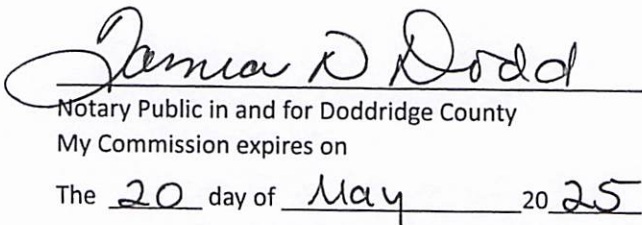 D Dodd
Notary Public in and for Doddridge County
My Commission expires on
The 20 day of May 20 25